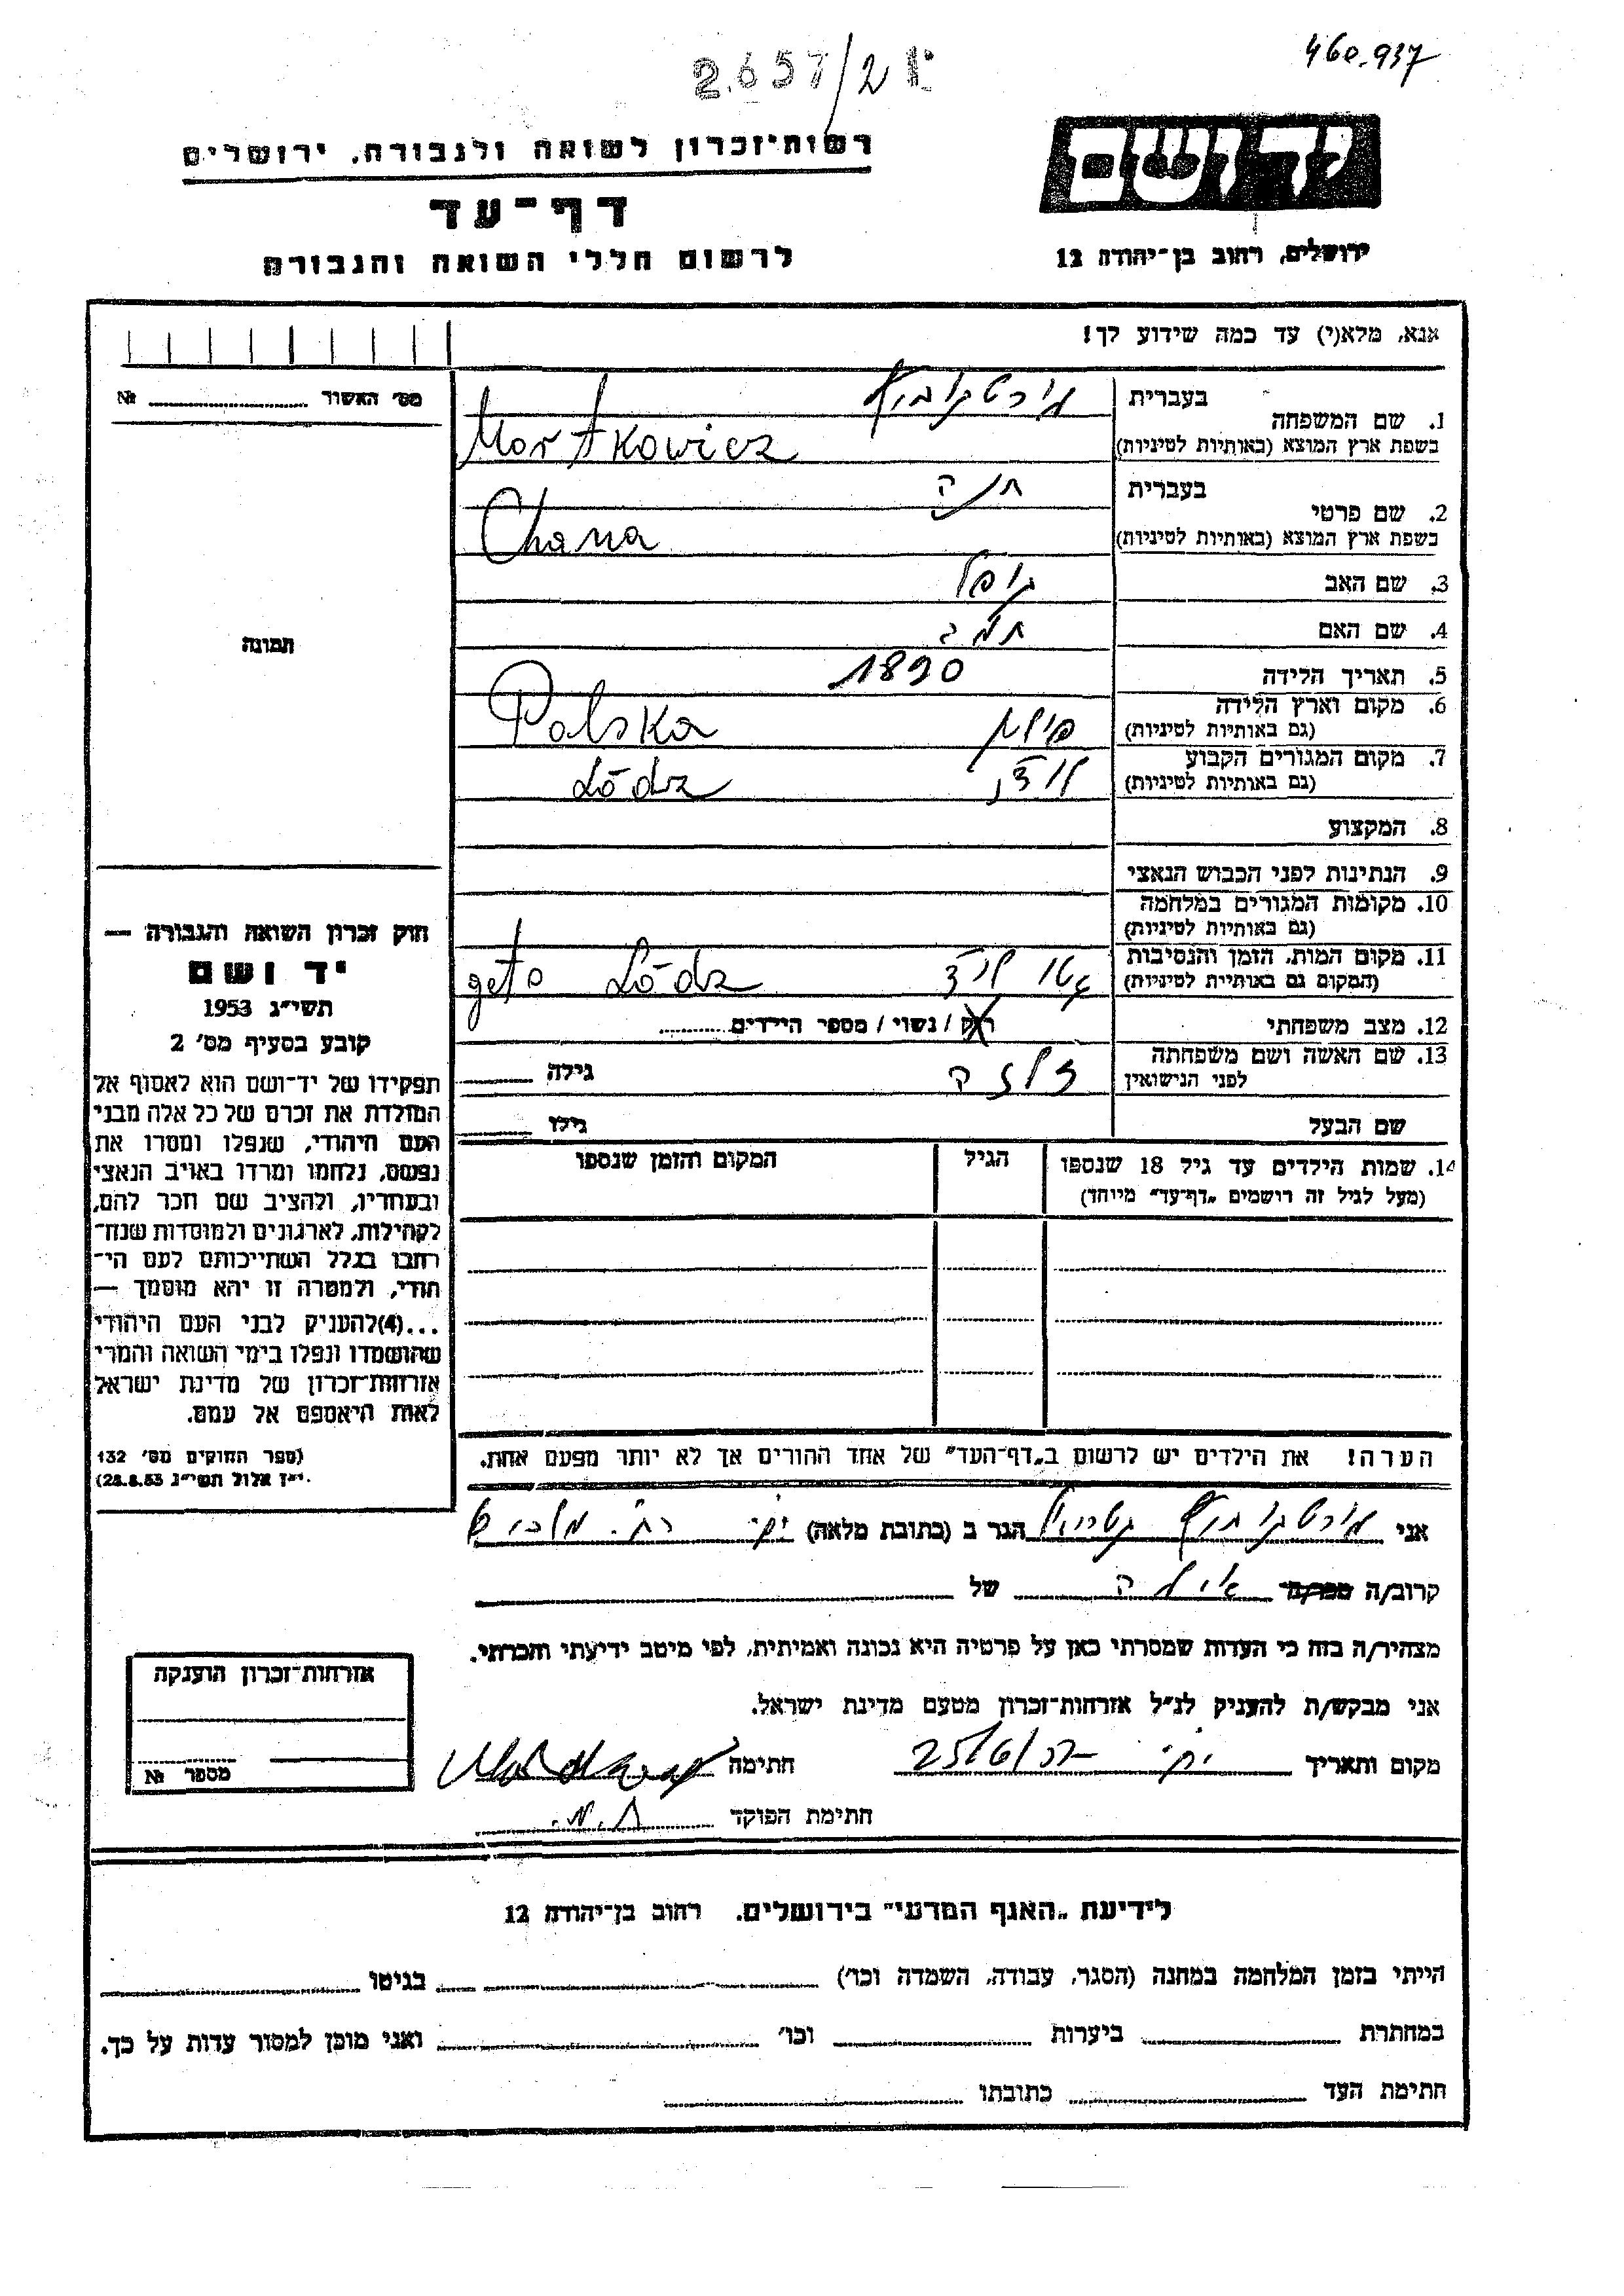 460.937
2657/2
רשות־זכרון לשואה ולגבורה, ירושלים
דף־עד
לרשום חללי השואה והגבורה
יד ושם
ירושלים, רחוב בן־יהודה 12
אנא, מלא(י) עד כמה שידוע לך!
מס׳ האשור № 
1. שם המשפחה
בעברית
בשפת ארץ המוצא (באותיות לטיניות)
Mortkowicz
2. שם פרטי
בעברית חנה
בשפת ארץ המוצא (באותיות לטיניות)
Chana
3. שם האב
4. שם האם
5. תאריך הלידה 1890
6. מקום וארץ הלידה
(גם באותיות לטיניות)
פולין Polska
7. מקום המגורים הקבוע
(גם באותיות לטיניות)
Lódz
8. המקצוע
9. הנתינות לפני הכבוש הנאצי
10. מקומות המגורים במלחמה
(גם באותיות לטיניות)
11. מקום המות, הזמן והנסיבות
(המקום גם באותיות לטיניות)
גטו לודז geto Lódz
12. מצב משפחתי רווק / נשוי / מספר הילדים
13. שם האשה ושם משפחתה
לפני הנישואין
גילה
שם הבעל גילו
14. שמות הילדים עד גיל 18 שנספו
(מעל לגיל זה רושמים „דף־עד״ מיוחד)
הגיל
המקום והזמן שנספו
תמונה
חוק זכרון השואה והגבורה —
יד ושם
תשי״ג 1953
קובע בסעיף מס׳ 2
תפקידו של יד־ושם הוא לאסוף אל
המולדת את זכרם של כל אלה מבני
העם היהודי, שנפלו ומסרו את
נפשם, נלחמו ומרדו באויב הנאצי
ובעוזריו, ולהציב שם וזכר להם,
לקהילות, לארגונים ולמוסדות שנח־
רבו בגלל השתייכותם לעם הי־
הודי, ולמטרה זו יהא מוסמך —
...(4)להעניק לבני העם היהודי
שהושמדו ונפלו בימי השואה והמרי
אזרחות־זכרון של מדינת ישראל
לאות היאספם אל עמם.
(ספר החוקים מס׳ 132
י״ז אלול תשי״ג 28.8.53)
הערה! את הילדים יש לרשום ב„דף־העד״ של אחד ההורים אך לא יותר מפעם אחת.
אני הגר ב (כתובת מלאה)
קרוב/ה מכר/ה של
מצהיר/ה בזה כי העדות שמסרתי כאן על פרטיה היא נכונה ואמיתית, לפי מיטב ידיעתי והכרתי.
אני מבקש/ת להעניק לנ״ל אזרחות־זכרון מטעם מדינת ישראל.
מקום ותאריך חתימה
חתימת הפוקד
אזרחות־זכרון הוענקה
מספר №
לידיעת „האגף המדעי״ בירושלים, רחוב בן־יהודה 12
הייתי בזמן המלחמה במחנה (הסגר, עבודה, השמדה וכו׳) בגיטו
במחתרת ביערות וכו׳ ואני מוכן למסור עדות על כך.
חתימת העד כתובתו